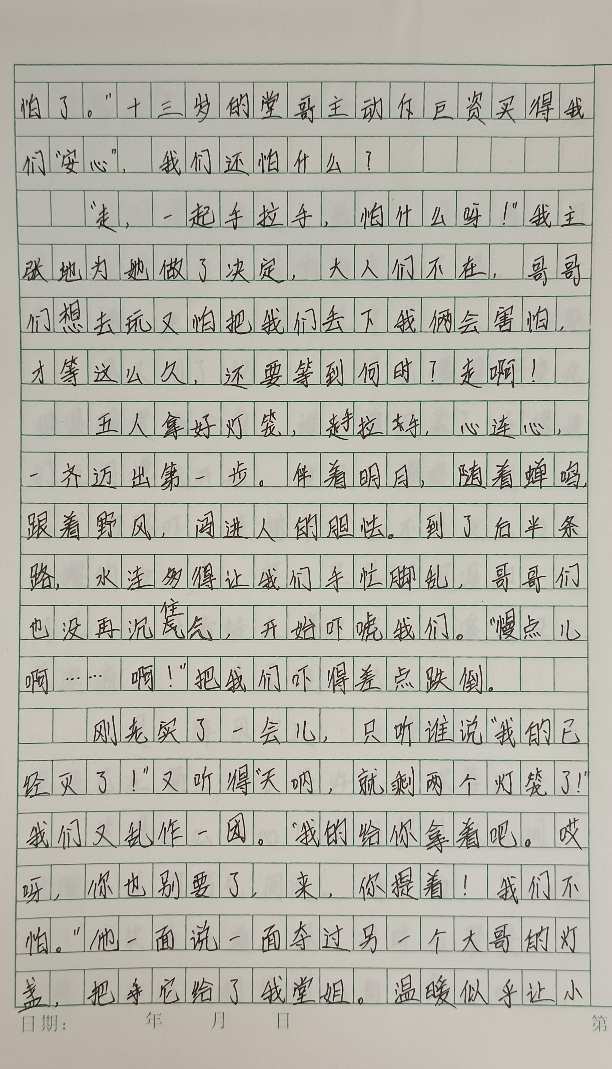 怕了。"十三岁的堂哥主动斥巨资买得我
们"安心",我们还怕什么?
"走,一起手拉手,怕什么呀!"我主
张地为她做了决定,大人们不在,哥哥
们想去玩又怕把我们丢下我俩会害怕,
才等这么久,还要等到何时?走啊!
五人拿好灯笼,手拉手,心连心,
一齐迈出第一步。伴着明月,随着蝉鸣,
跟着野风,闯进人的胆怯。到了后半条
路,水洼多得让我们手忙脚乱,哥哥们
也没再沉住气,开始吓唬我们。"慢点儿
啊……啊!"把我们吓得差点跌倒。
刚老实了一会儿,只听谁说"我的已
经灭了!"又听得"天呐,就剩两个灯笼了!"
我们又乱作一团。"我的给你拿着吧。哎
呀,你也别要了,来,你提着!我们不
怕。"他一面说一面夺过另一个大哥的灯
盖,把它给了我堂姐。温暖似乎让小
日期: 年 月 日 第